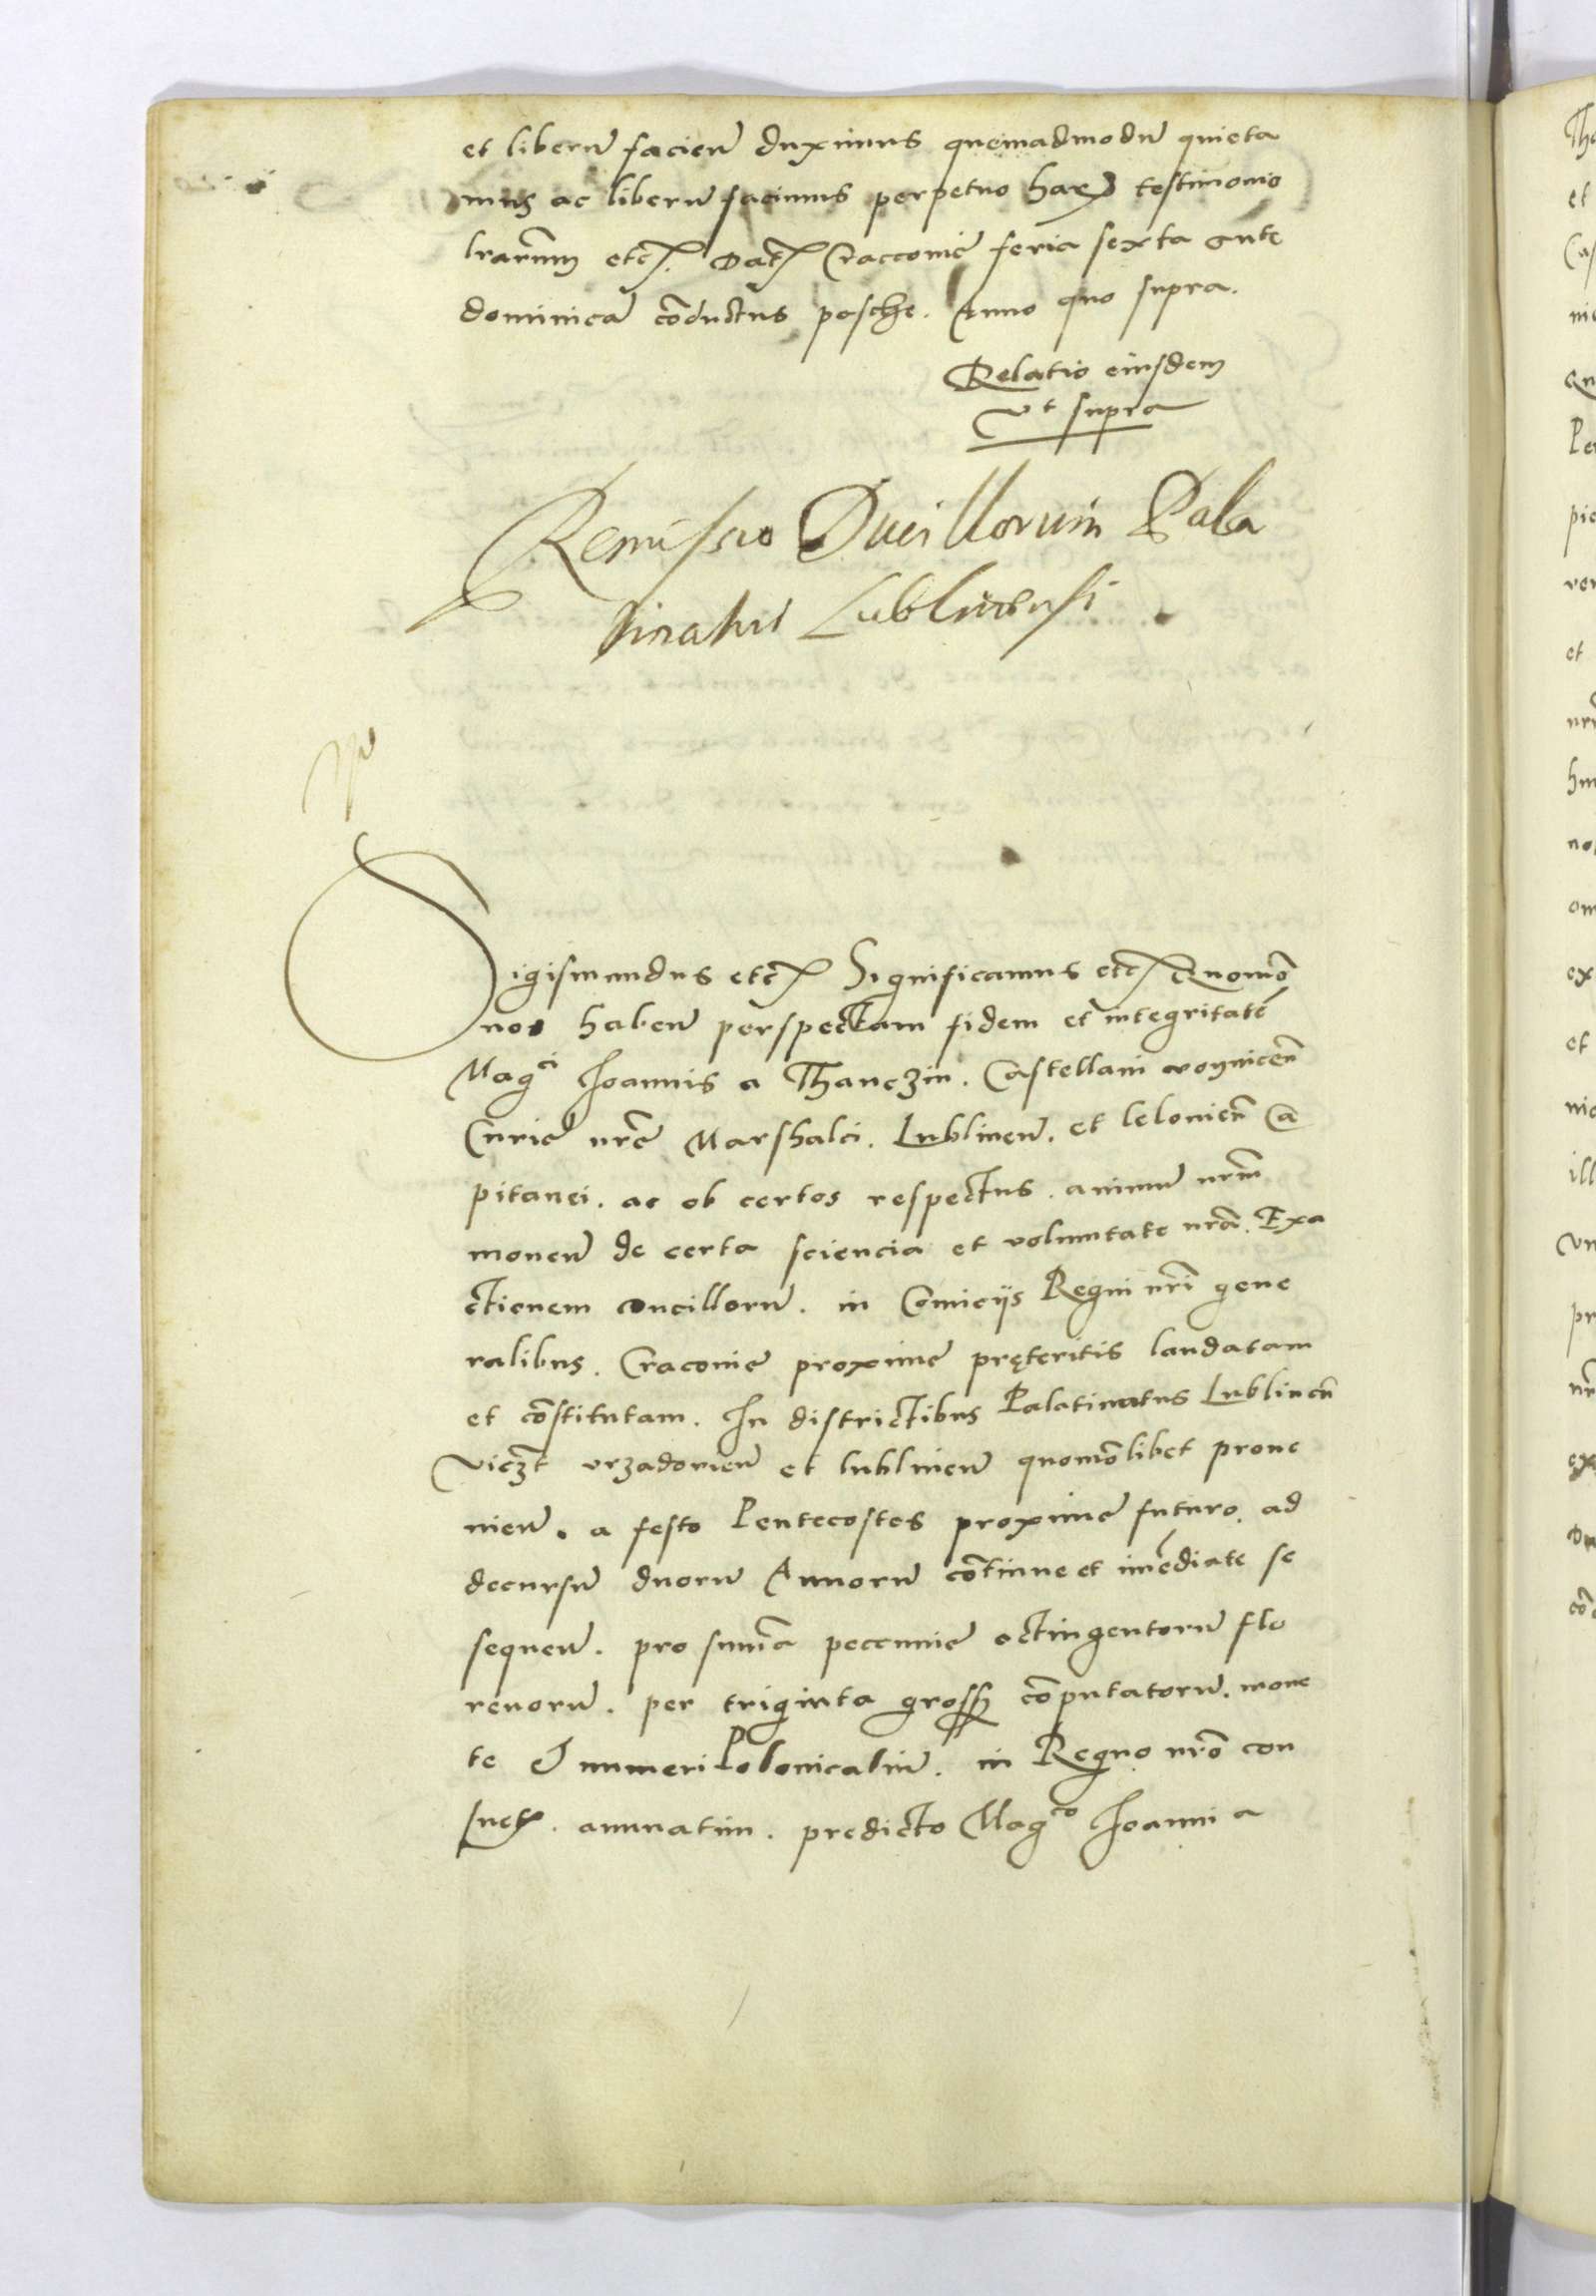 et liberu̅ facien̅ duximus quemadmodu̅ quieta
mus ac liberu̅ facimus perpetuo harꝝ testimonio
l̅rarum etc̅. Dat̅ Craccouię feria sexta ante
dominica̅ co̅ductus pasche. Anno quo supra.
Relatio eiusdem
vt supra
Remissio Ducillorum Pala
tinatus Lublinensi
Sigismundus etc̅ Significamus etc̅ Quomo̅
nos haben̅ perspectam fidem et integritate̅
Mag^ci Joannis a Thanczin. Castellani woynicen̅
Curię nr̅ę Marshalci. Lublinen̅. et lelouien̅ Ca
pitanei. ac ob certos respectus. animu̅ nr̅m
mouen̅ de certa sciencia et voluntate nr̅a. Exa
ctionem ducilloru̅. in Comicijs Regni nr̅i gene
ralibus. Cracouię proxime pręteritis laudatam
et co̅stitutam. In districtibus Palatinatus Lublinen̅
viczt vrzadouien̅ et lublinen̅ quomo̅libet proue
nien̅. a festo Pentecostes proxime futuro. ad
decursu̅ duoru̅ Annoru̅ co̅tinue et im̅ediate se
sequen̅. pro sum̅a peccunię octingentoru̅ flo
renoru̅. per triginta gross co̅putatoru̅. mone
te & numeri Polonicaliu̅. in Regno nr̅o con
suet. annuatim. predicto Mag^co Joanni a